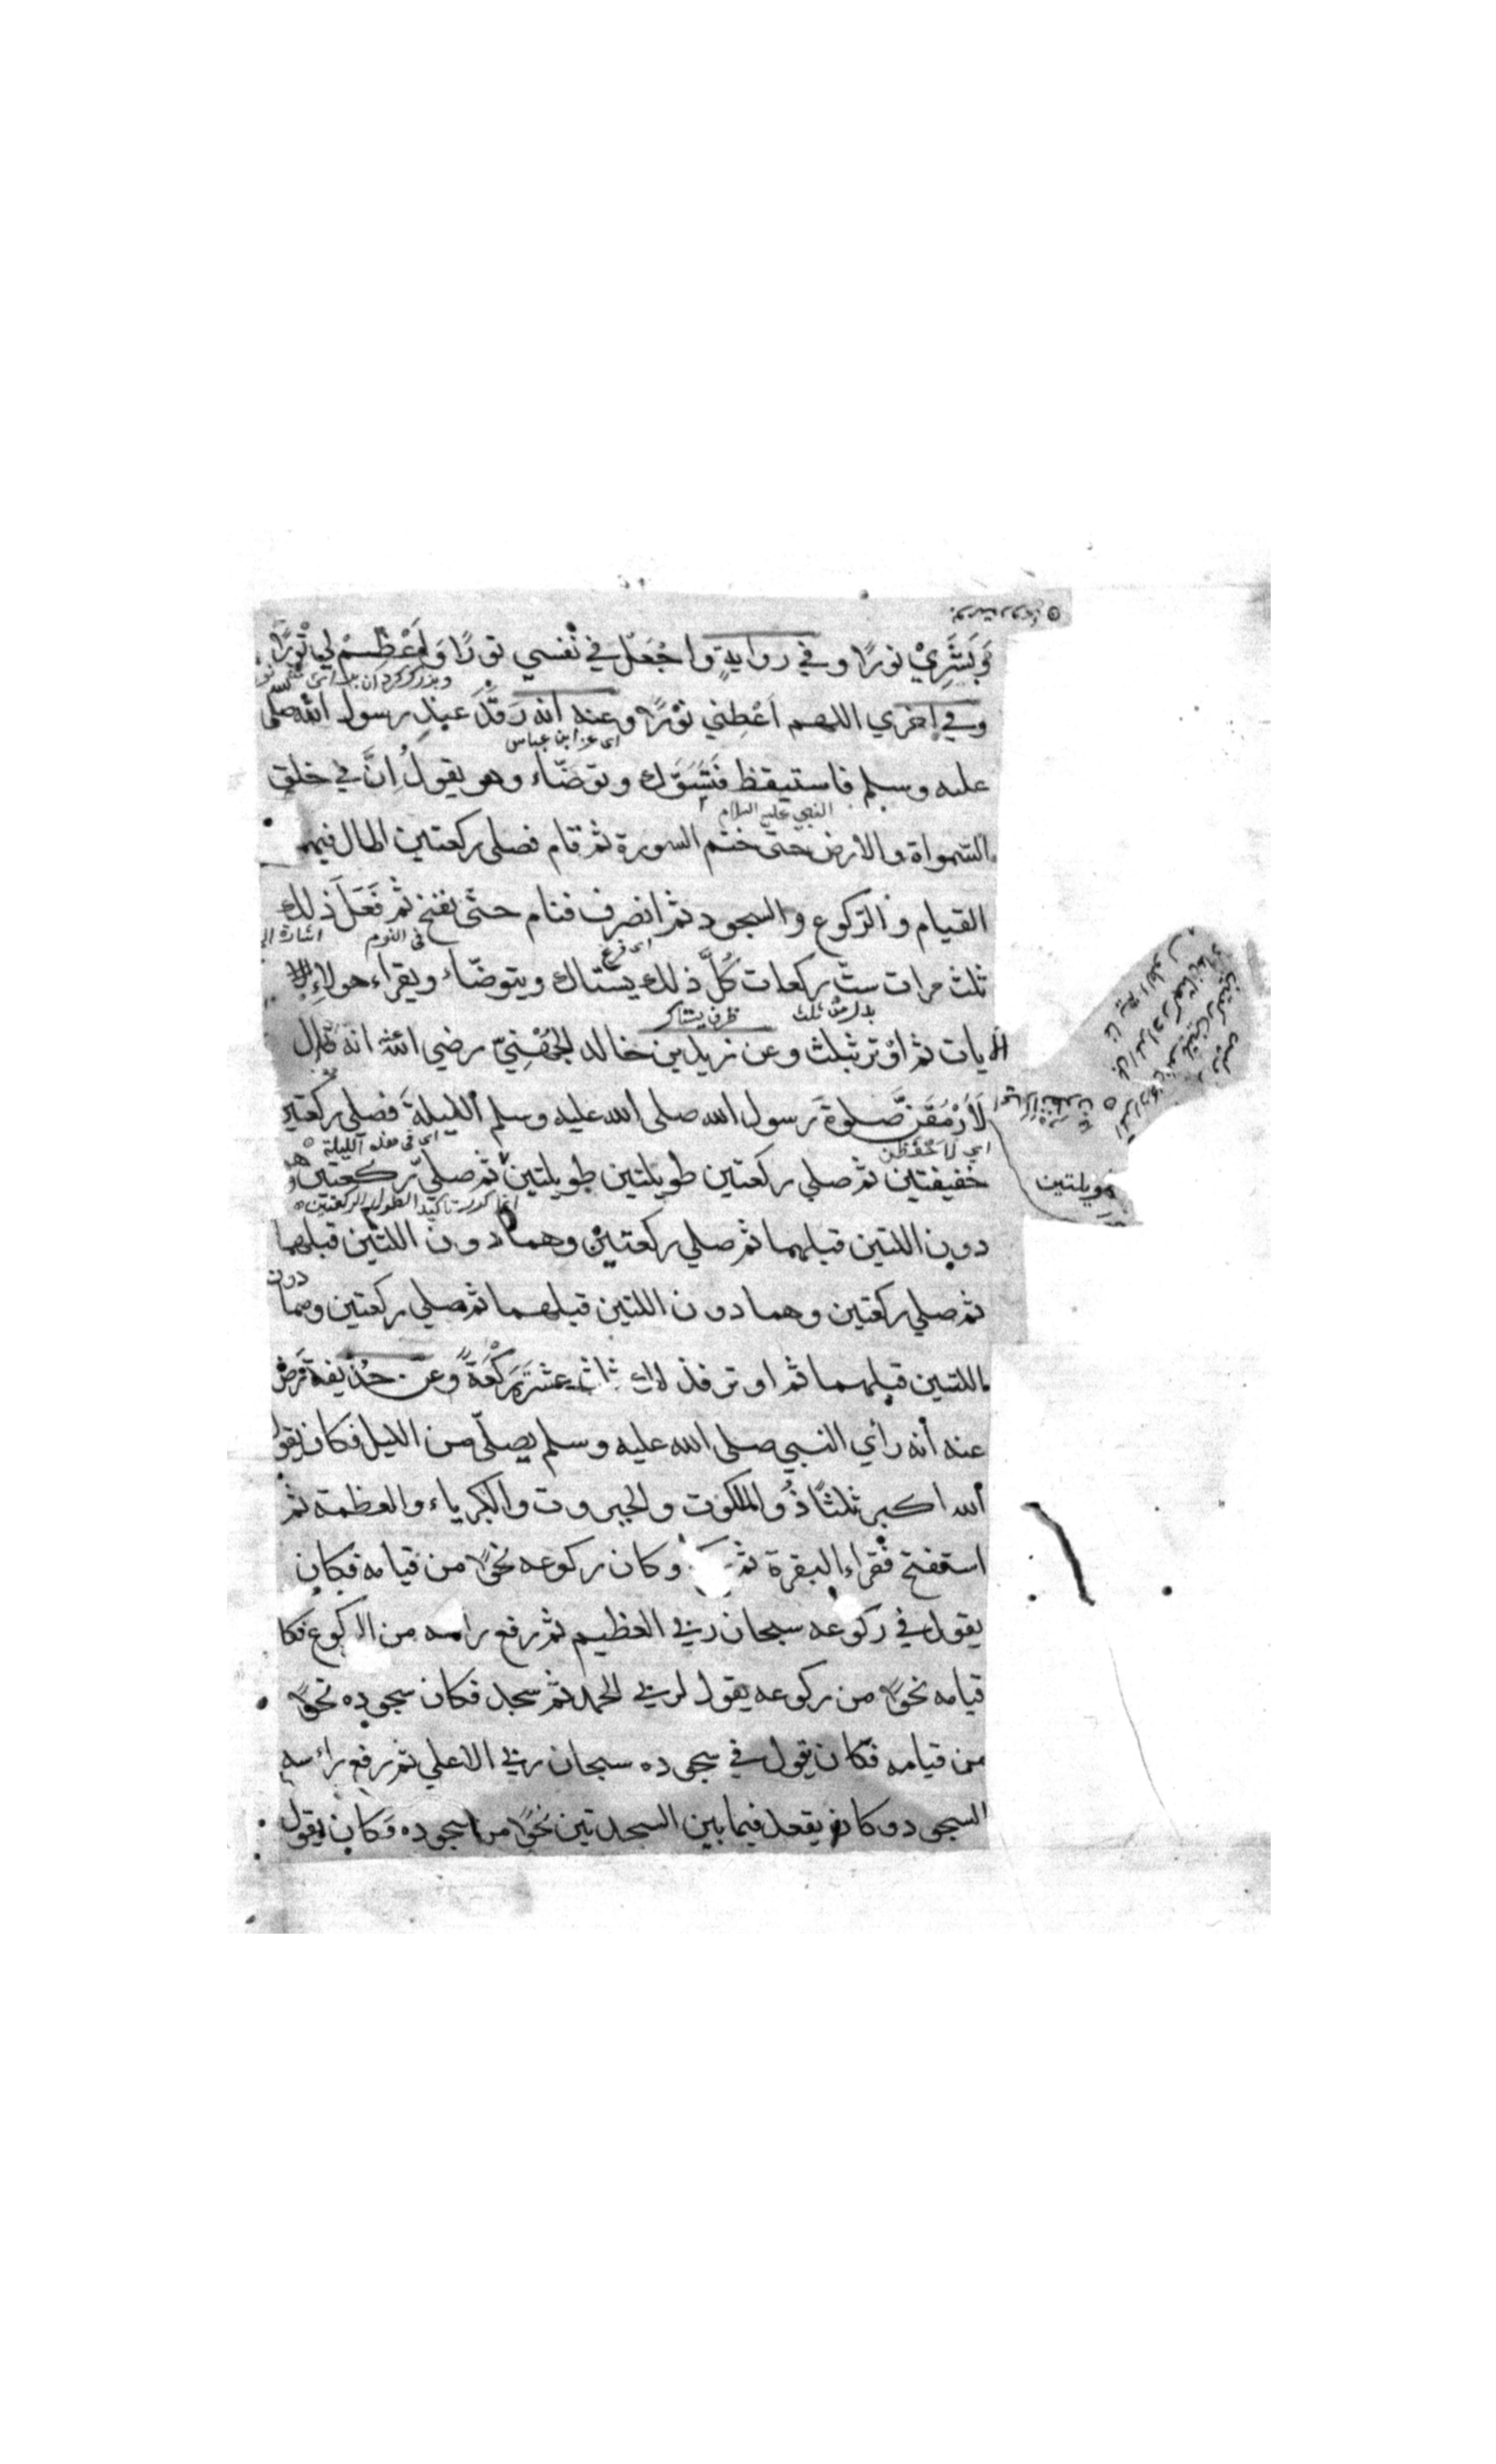 وَبَشَرِيْ نورًا وفي روايةٍ واجْعَلْ في نَفسي نورًا وَاَعْظِمْ لي نُورًا
وفي اخري اللهم اَعْطِني نوْرًا وعنه انه رَقَدَ عند رسول الله صلى
اى عن ابن عباس
عليه وسلم فاستيقظ فَتَسَوَّكَ وتوضّاء وهو يقولُ اِنَّ في خلق
النبي عليه السلام
السّمواة والارض حتى ختم السورة ثم قام فصلى ركعتين اطال فيهما
القيام والرّكوع والسجود ثم انصرف فنام حتّى نفخ ثم فَعَلَ ذلك
فى النوم
اشارة الى
ثلث مرات ستّ ركعات كُلَّ ذلك يستاك ويتوضّاء ويقراء هولاءِ
بدل من ثلث
ظرف يستاك
الايات ثم اوْتر بثلث وعن زيد بن خالد الجُهْنِيّ رضي الله انه قال
لَاَرْمُقَنَّ صَلوةَ رسول الله صلى الله عليه وسلم الليلةَ فصلى ركعتين
اي لَاَحْفَظَنَّ
اى فى هذه الليلة
خفيفتين ثم صلي ركعتين طويلتين طويلتين ثم صلىّ ركعتين وهما
طويلتين
انما كرر تاكيد الطول الركعتين
دون اللتين قبلهما ثم صلي ركعتين وهما دون اللتين قبلهما
ثم صلي ركعتين وهما دون اللتين قبلهما ثم صلي ركعتين وهما دون
اللتين قبلهما ثم اوتر فذلك ثلث عشرَةَ رَكْعَةً وعن حُذيفة رض
عنه أنه رأي النبي صلى الله عليه وسلم يصلّى من الليل فكان يقول
الله اكبر ثلثًا ذُو الملكوت والجبروت والكبرياء والعظمة ثم
استفتح فقراء البقرة ثم وكان ركوعه نحوًا من قيامه فكان
يقول في ركوعه سبحان ربي العظيم ثم رفع راسه من الركوع فكا
قيامه نحوًا من ركوعه يقول لربي الحمد ثم سجد فكان سجوده نحوًا
من قيامه فكان يقول في سجوده سبحان ربي الاعلي ثم رفع راسه
السجود وكان يقعد فيما بين السجدتين نحوًا من سجوده وكان يقول